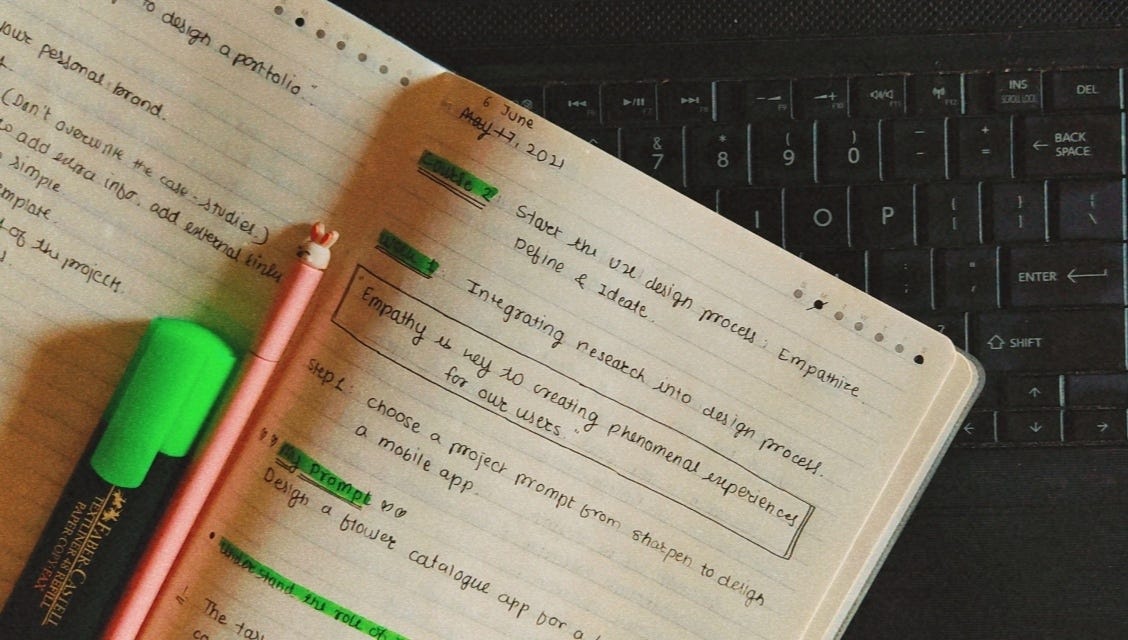 to design a portfolio."
your personal brand.
(Don't overwrite the case-studies)
to add extra info, add external links
simple
template.
t of the project.
6 June
May 17, 2021
Course 2: Start the UX design process: Empathize
Define & Ideate.
Week 1 Integrating research into design process.
"Empathy is key to creating phenomenal experiences
for our users."
Step 1: choose a project prompt from sharpen to design
a mobile app.
My Prompt
Design a flower catalogue app for a
• understand the role of
The
FABER CASTELL
TEXTLINER 48 REFILL
PAPER COPY FAX
F7
F9
INS
SCROLL LOCK
DEL
& 7
* 8
( 9
) 0
BACK
SPACE
I
O
P
ENTER
SHIFT